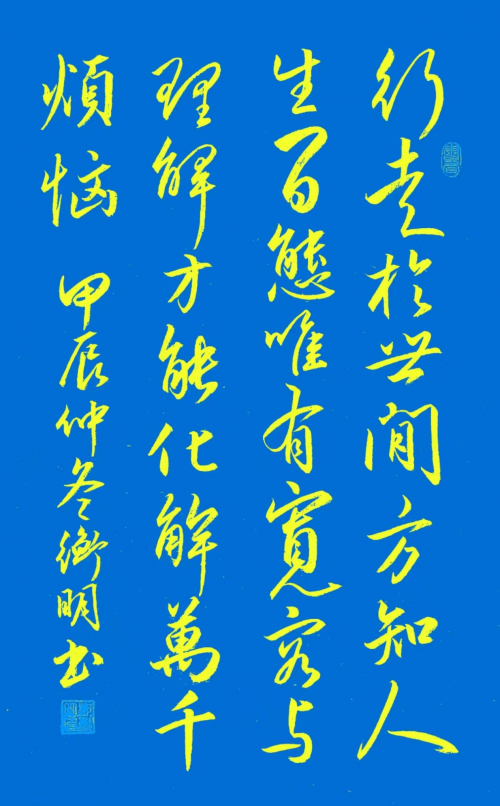 行走於世間方知人
生百態唯有寬容与
理解才能化解萬千
煩惱 甲辰仲冬衛明书